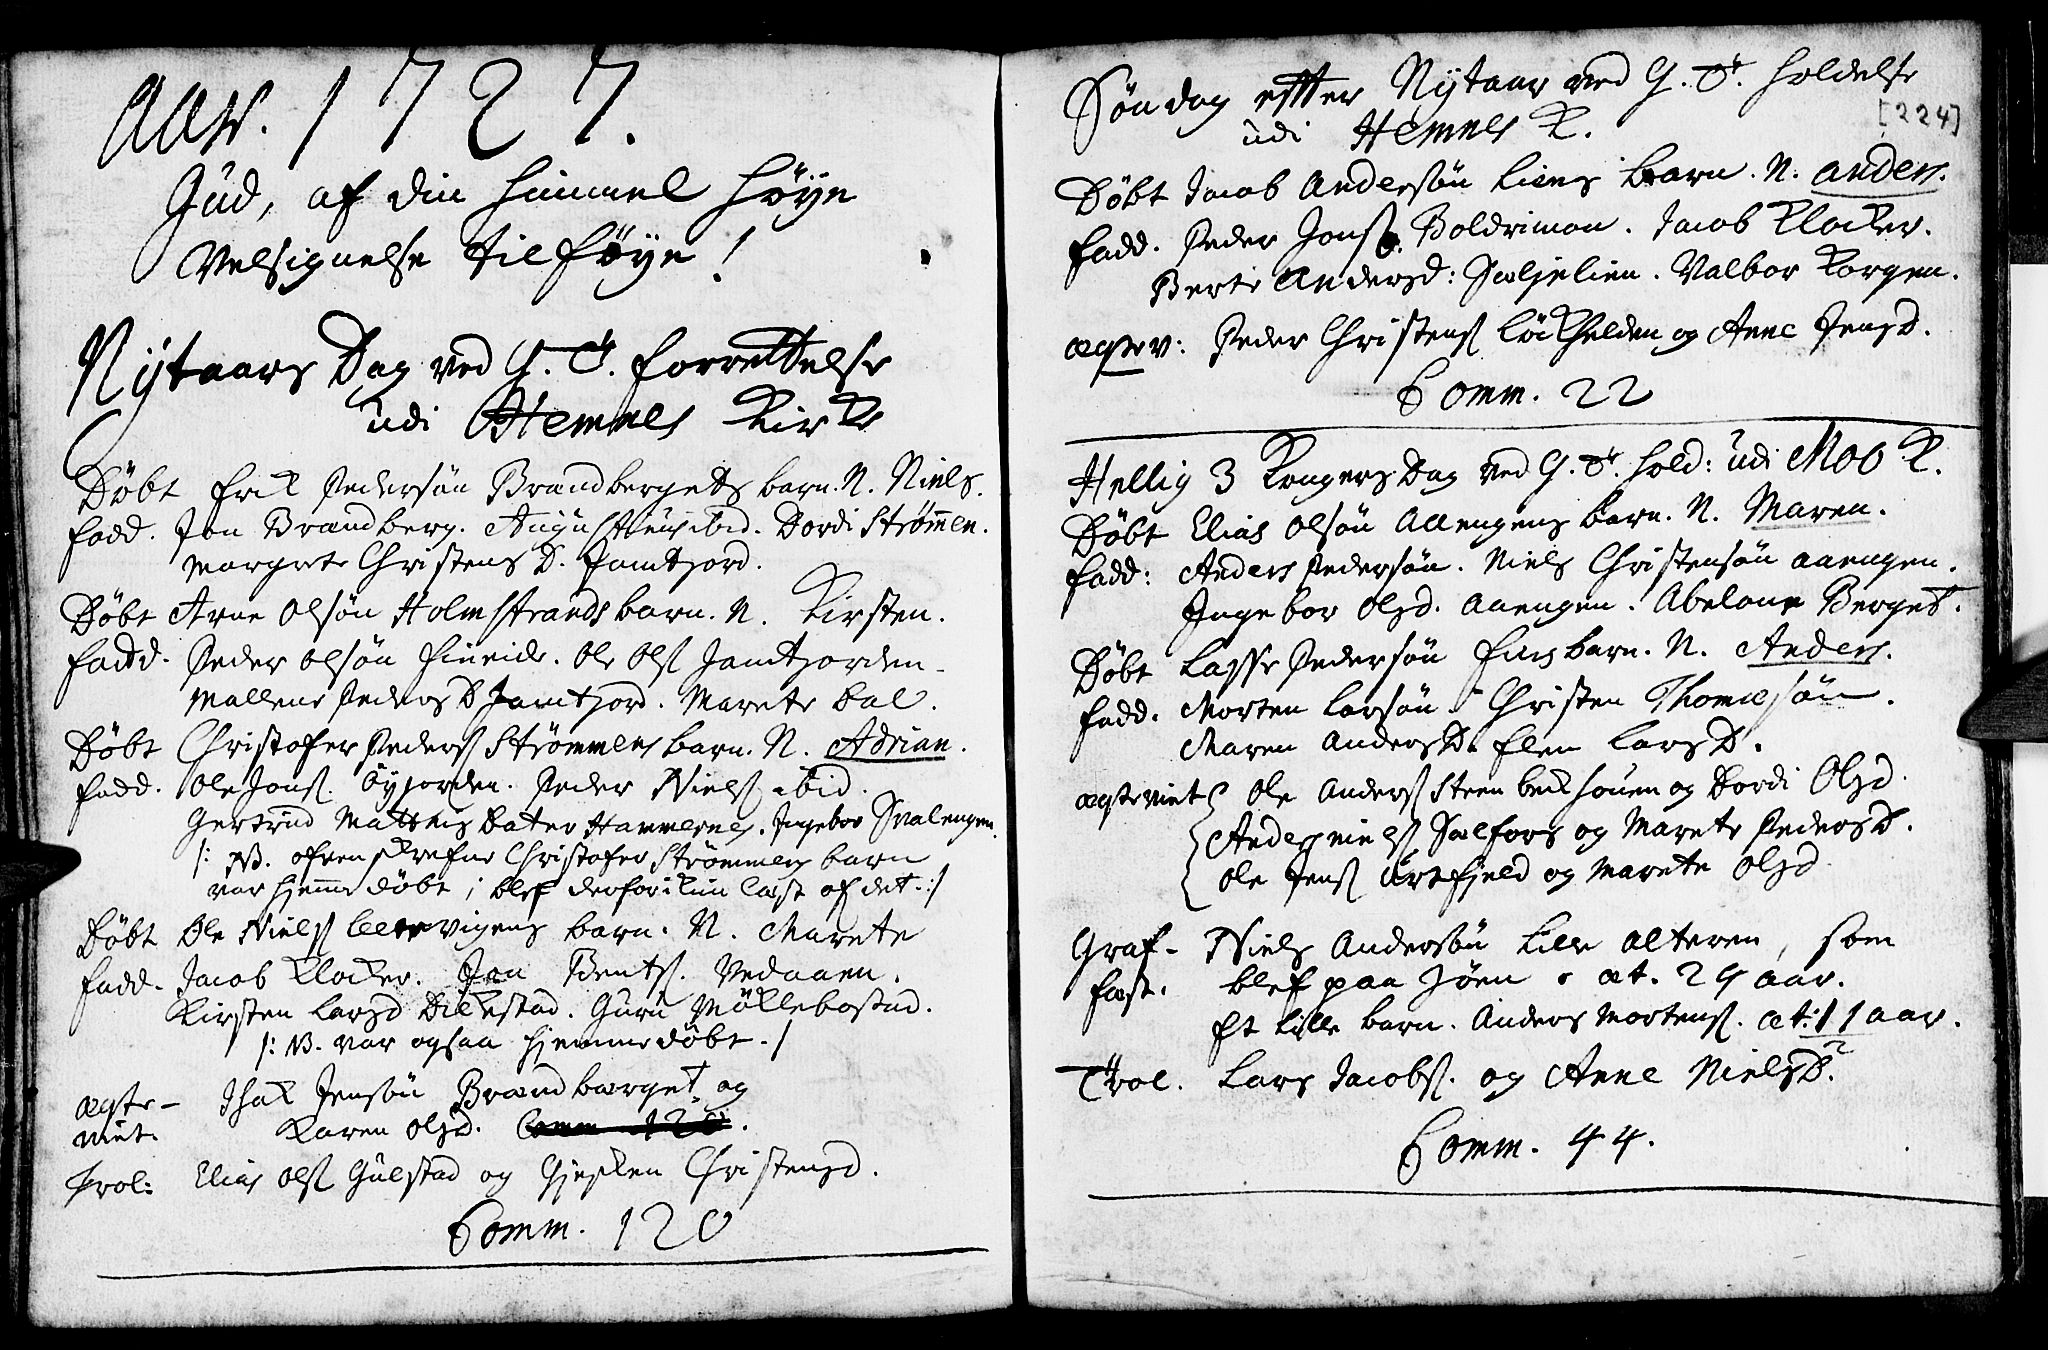 Aar. 1727.
Gud, af din Himmel Höye
Velsignelse tilföye!
Nytaars Dag ved G. T. forrettelse
udi Hemnes Kirke
Döbt Erik Pedersön Brandbergets barn. N. Niels.
fadd. Jon Brandberg. Augustinus ibid. Dordi Strømmen.
Margrete Christens D. Jamtjord.
Döbt Arne Olsön Holmstrands barn. N. Kirsten.
fadd. Peder Olsön Fineide. Ole Ols. Jamtjorden
Mallene Peders D. Jamtjord. Marete Dal.
Döbt Christofer Peders. Strømmens barn. N. Adrian.
fadd. Ole Jons. Byjorden. Peder Niels. ibid.
Gertrud Matthis Dater Hammernes. Ingebor Svalengen.
/: NB. ofvenskrefne Christofer Strømmens barn
var hjemme döbt, blef derfor ikun læst of det. :/
Döbt Ole Niels. Leervigens barn. N. Marete
fadd. Jacob Klocker. Jon Bents. Vedaaen.
Kirsten Larsd Dilkestad. Guru Möllebostad.
/: NB. var ogsaa hjemmedöbt. /
ægte- Isak Jensön Brandbærget og
viet. Karen Olsd. Comm 120.
Trol: Elias Ols. Gulstad og Gjesken Christensd.
Comm. 120
Söndag effter Nytaar ved G. T. holdelse
[224]
udi Hemnes K.
Döbt Jacob Andersön Liens barn. N. Anders.
fadd. Peder Jons. Boldermon. Jacob Klocker.
Berte Andersd: Sæljelien. Valbor Korgen.
ægtev: Peder Christens. Löckhelden og Anne Jensd.
Comm. 22
Hellig 3 Kongers Dag ved G. T. hold: udi Moe K.
Döbt Elias Olsön Aaengens barn. N. Maren.
fadd: Anders Pedersön. Niels Christensön Aaengen.
Ingebor Olsd. Aaengen. Abelone Berget.
Döbt Lasse Pedersön barn. N. Anders.
fadd. Morten Larsön Christen Thomesön.
Maren Anders D. Elen Lars D.
ægteviet Ole Anders. Steenbeckhouen og Dordi Olsd.
Anders Niels. Sælfors og Marete Peders D.
Ole Jens. Urtfjeld og Marete Olsd
Graf- Niels Andersön Lille Alteren, som
fæst. blef paa Söen. æt. 29 aar.
Et lille barn. Anders Mortens. æt: 11 aar.
Trol. Lars Jacobs. og Anne Niels D.
Comm. 44.